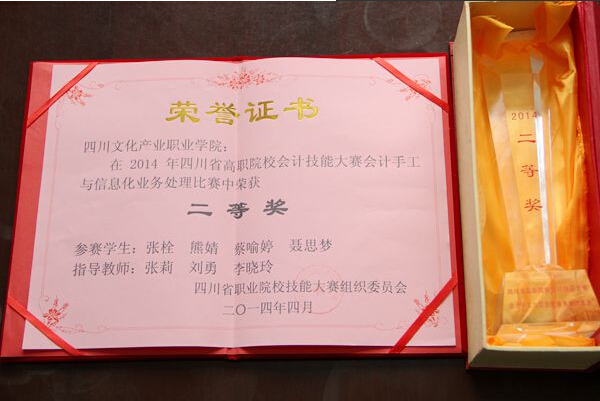 荣誉证书
四川文化产业职业学院：
在 2014 年四川省高职院校会计技能大赛会计手工
与信息化业务处理比赛中荣获
二等奖
参赛学生：张栓 熊婧 蔡喻婷 聂思梦
指导教师：张莉 刘勇 李晓玲
四川省职业院校技能大赛组织委员会
二〇一四年四月
2014
二等奖